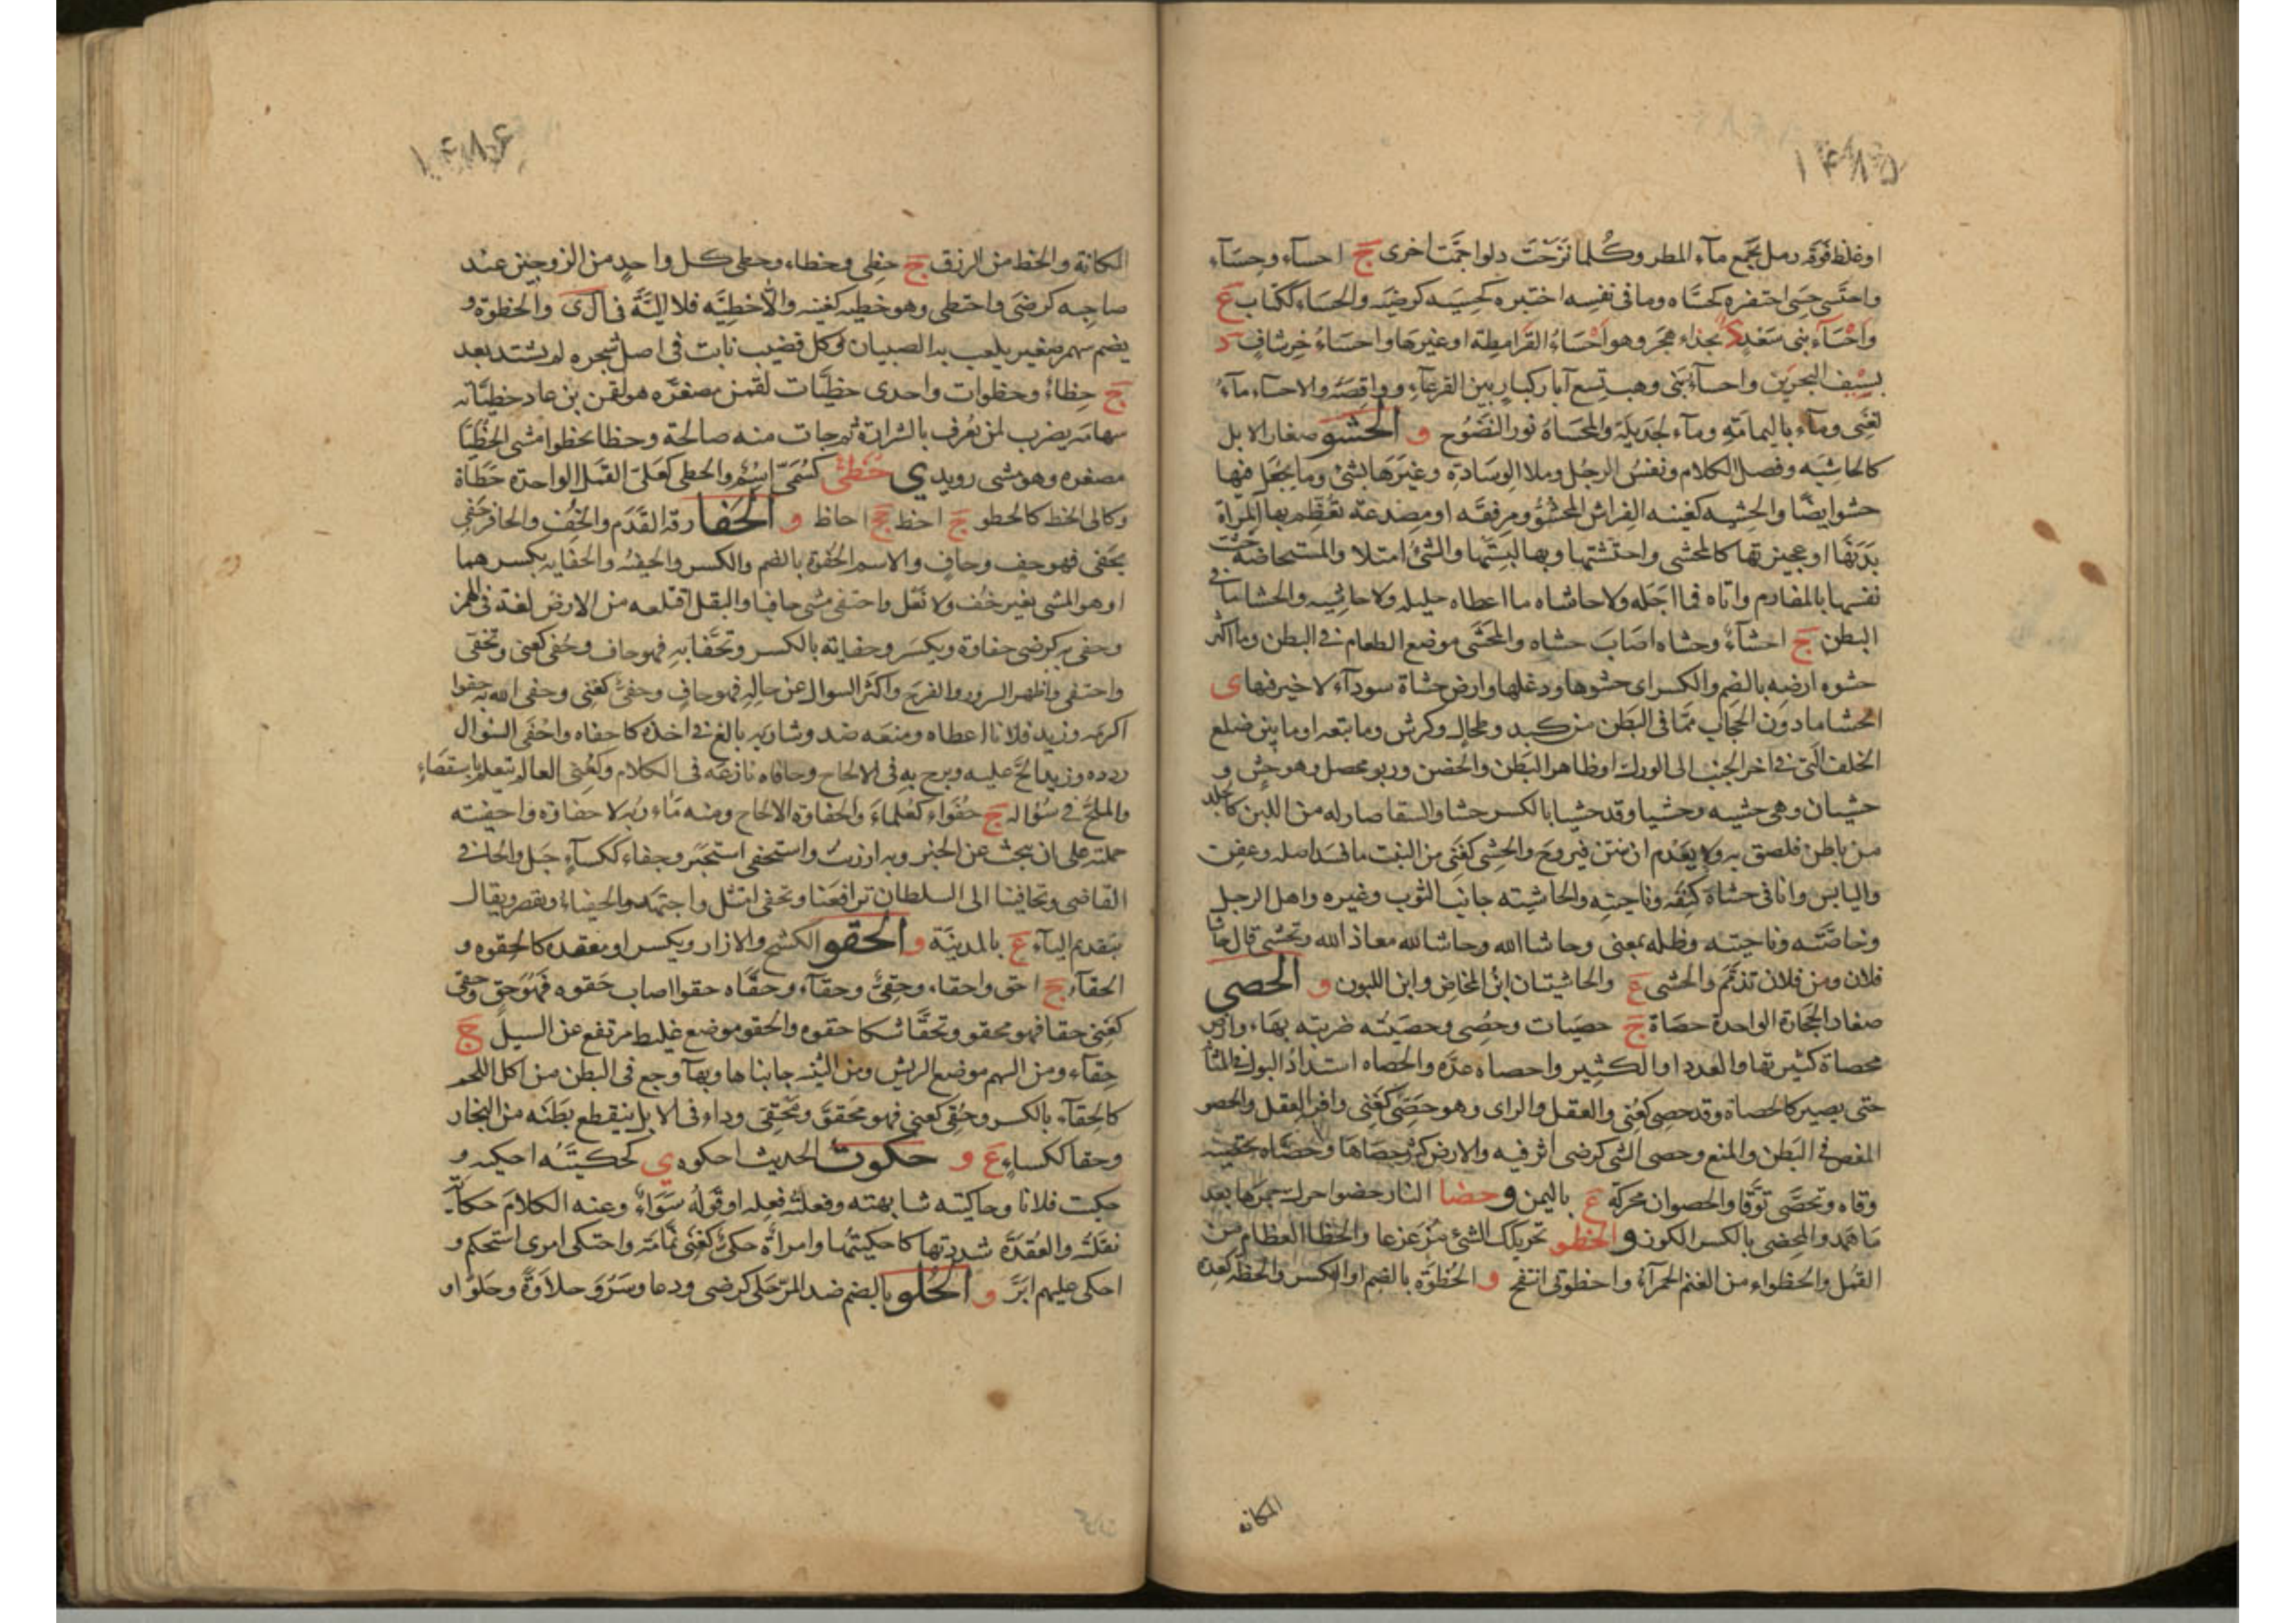 ۱۴۸۵
او غلظ فوقه رمل يجمع مآء المطر وكُلما نَزَحْتَ دلوا جمّت اخرى ج احسآء وحِسَآء
واحتَسى حِسى احتفره كحسَّاه وما فى نفسِه اختبره كحَسِيَه كرضيه والحسَاء ككتاب ع
وَاَحْسَآء بنى سَعْدٍ د بحذاء هجَر وهو اَحْسَاءُ القَرامِطَة او غيرها واحسَاءُ خِرشافٍ د
بسِيْفِ البحرَين واحسآء بَنى وهب تِسع آبار كبارٍ بين القرعآءِ وواقِصَة والاحسآء مآءٌ
لغَنِى ومآء باليمامَةِ ومآء لجَديلَة والمحسَاةُ ثور النَضُوح و الحَشْو صغار الابل
كالحاشِيَه وفصل الكلام ونفسُ الرجُل وملا الوِسَادَةِ وغيَرها بشئ وما يجُعَل فيها
حشو ايضًا والحشِيه كغنيه الفِراش المحْشُوُّ ومِرفقَه او مِصْدعَة تعُظِّم بها المرأة
بَدَنَها او عجِيزتها كالمحشى واحتشتها وبها لبِسَتْها والشئُ امتلا والمستحاضة حَشت
نفسها بالمفارم واتاه فما اجَلّه ولا حاشاه ما اعطاه جليله ولا حاشيه والحشا ما فى
البطن ج احشآءٌ وحشاه اصَابَ حشاه والمحَشى موضع الطعام فى البطن وما اكثر
حشوه ارضِه بالضم والكسر اى حشوها ودغلها وارض حشاة سودآء لا خير فيها ى
الحشا ما دوَن الحجاب ممَّا فى البَطن من كبد وطحال وكرش وما تبعه او ما بين ضلع
الخلف الّتى فى اخر الجنب الى الورك او ظاهر البَطن والحضن وربو محصل وهو حشٍ و
حشيان وهى حشيه وحشيا وقد حشيا بالكسر حشا والسقا صار له من اللبن كالجلد
من باطن فلصق به ولا يعدم ان ينتن فيروح والحشِى كغَنِى من النبت ما فسد اصله وعفن
واليابس وانا فى حشاة كنِفَه وناحيتِه والحاشيته جانب الثوب وغيره واهل الرجل
وخاصَّتَه وناحيتَه وظله بمعنى وحاشا الله وحاشا لله معاذ الله وتحشى قال حاشا
فلان ومن فلان تذمَّمَ والحشى ع والحاشيتان ابنُ المخاض وابن اللبون و الحصى
صغار الحجارة الواحدة حصَاة ج حصَيات وحُصِى وحصَيْتُه ضربتِه بهَا وارض
محصاة كثيرتها والعَدد او الكثِير واحصاه عدَّه والحصاه اشتدادُ البول فى المثا
حتى يصير كالحصاة وقد حصى كعُنِى والعقل والراى وهو حَصِىٌّ كغَنِى وافر العقل والحصو
المغص فى البَطن والمنع وحصى الشى كرضى اثر فيه والارض كثر حصَاهَا وحصَّاه تحصِيه
وقاه وتحصَّى توَّقا والحصوان محركة ع باليمن و حضا النار حضوا حرك جمرَها بعد
مَا همَد والمحضى بالكسر الكور و الحظو تحريكك الشئ مُزَعزعا والحظا العظام من
القمُل والحظواء من الغنم الحمرآء واحظوتى انتفخ و الحُظوَّه بالضم او الكسر والحظه كعِدة
المكانه
۱۴۸۶
المكانة والحظ من الرزق ج حظِى وحظاء وحظى كل واحدٍ من الزوجين عند
صاحِبه كرضىَ واحتظى وهو حظيه كغنيه والّا حظِيَّه فلا اليَّةً فى ال ى والحَظوة و
يضم سهم صغير يلعب به الصبيان وكل قضيب نابت فى اصل شجره لم يشتد بعد
ج حِظاءٌ وحظوات واحدى حظيَّات لقمن مصغرّه هو لقمن بن عاد حظِيَّاته
سهامه يضرب لمن يُعْرف بالشرارة ثم جات منه صالحة وحظا يحظوا مشى الحُظَيَّا
مصغره وهو مشى رويد ى حُظَىٌّ كسُمَىّ اسْمٌ والحظى كعَلىَ القَمل الواحدة حَظَاة
وكالى الحظ كالحظو ج احظ جج احاظ و الحَفا رقة القَدَم والخُف والحافر حَفِى
يَحَفى فهو حِفٍ وحافٍ والاسم الحُفوة بالضم والكسر والحِفيَه والحفايه بكسرهما
او هو المشى بغير خُف ولا نَعْل واحتفى مشى حافيا والبقل اقتلعه من الارض لغة فى الهمز
وحفى به كرضى حفاوة ويكسَر وحفاية بالكسر وتحَّفا بهِ فهو حاف وحُفى كعنى وتحفى
واحتفى واظهر السرور والفرح واكثر السوال عن حالِهِ فهو حافٍ وحفىٌّ كغنِى وحفى الله به حفوا
اكرمَه وزيد فلانا اعطاه ومنعَه ضد وشاربَه بالغ فى اخذه كاحفاه واحْفَى السُوال
ردده وزيدا الحَّ عليه وبرح بهِ فى الالحاح وحافاه نازعَه فى الكلام وكغَنِى العالم يتعلم باستقصَاءٍ
والملحُّ فى سُؤاله ج حُفَواء كعُلماءَ والحفاوة الالحاح ومنه مَاء رُبة لا حفاوة واحفيته
حملته على ان يبحث عن الخبر وبه ارزيت واستحفى استخبَر وحِفاء ككسآءٍ جَبل والحافى
القاضى وتحافينا الى السلطان ترافعَنا وتحفى اتئل واجتهَد والحيفاءُ ويقصر ويقال
بتقديم اليآءِ ع بالمدينَة و الحقو الكشح والازار ويكسر او معقده كالحِقوه و
الحقآء ج احق واحقاء وحِقىٌّ وحقآء وحقَّاه حقوا اصاب حَقوه فهُوَ حَقٍ وحقى
كعُنى حقا فهو محقو وتحقَّا شكا حقوه والحقو موضع غليظ مرتفع عن السيل ج
حِقآء ومن السهم موضع الريش ومن الثنيه جانباها وبهآ وجع فى البطن من اكل اللحم
كالحِقآء بالكسر وحُقِى كعنى فهو محَقوَّ ومحْقِىَ وداء فى الابل ينقطع بَطنه من النحاز
وحقا ككساء ع و حكوت الحديث احكوه ى كحكيَتُه احكيه و
حكيت فلانا وحاكيته شابهته وفعلتُ فِعله او قَولَهُ سَوَاءً وعنه الكلامَ حكاية
نقلته والعُقدَة شددتها كاحكيتُها وامرأة حكىٌّ كغَنى نمَّامَة واحتكى امرى استحكم و
احكى عليهم ابَرَّ و الحُلو بالضم ضد المرّ حَلى كرضى ودعا وسَرُوَ حلاَوَةً وحَلوًا و